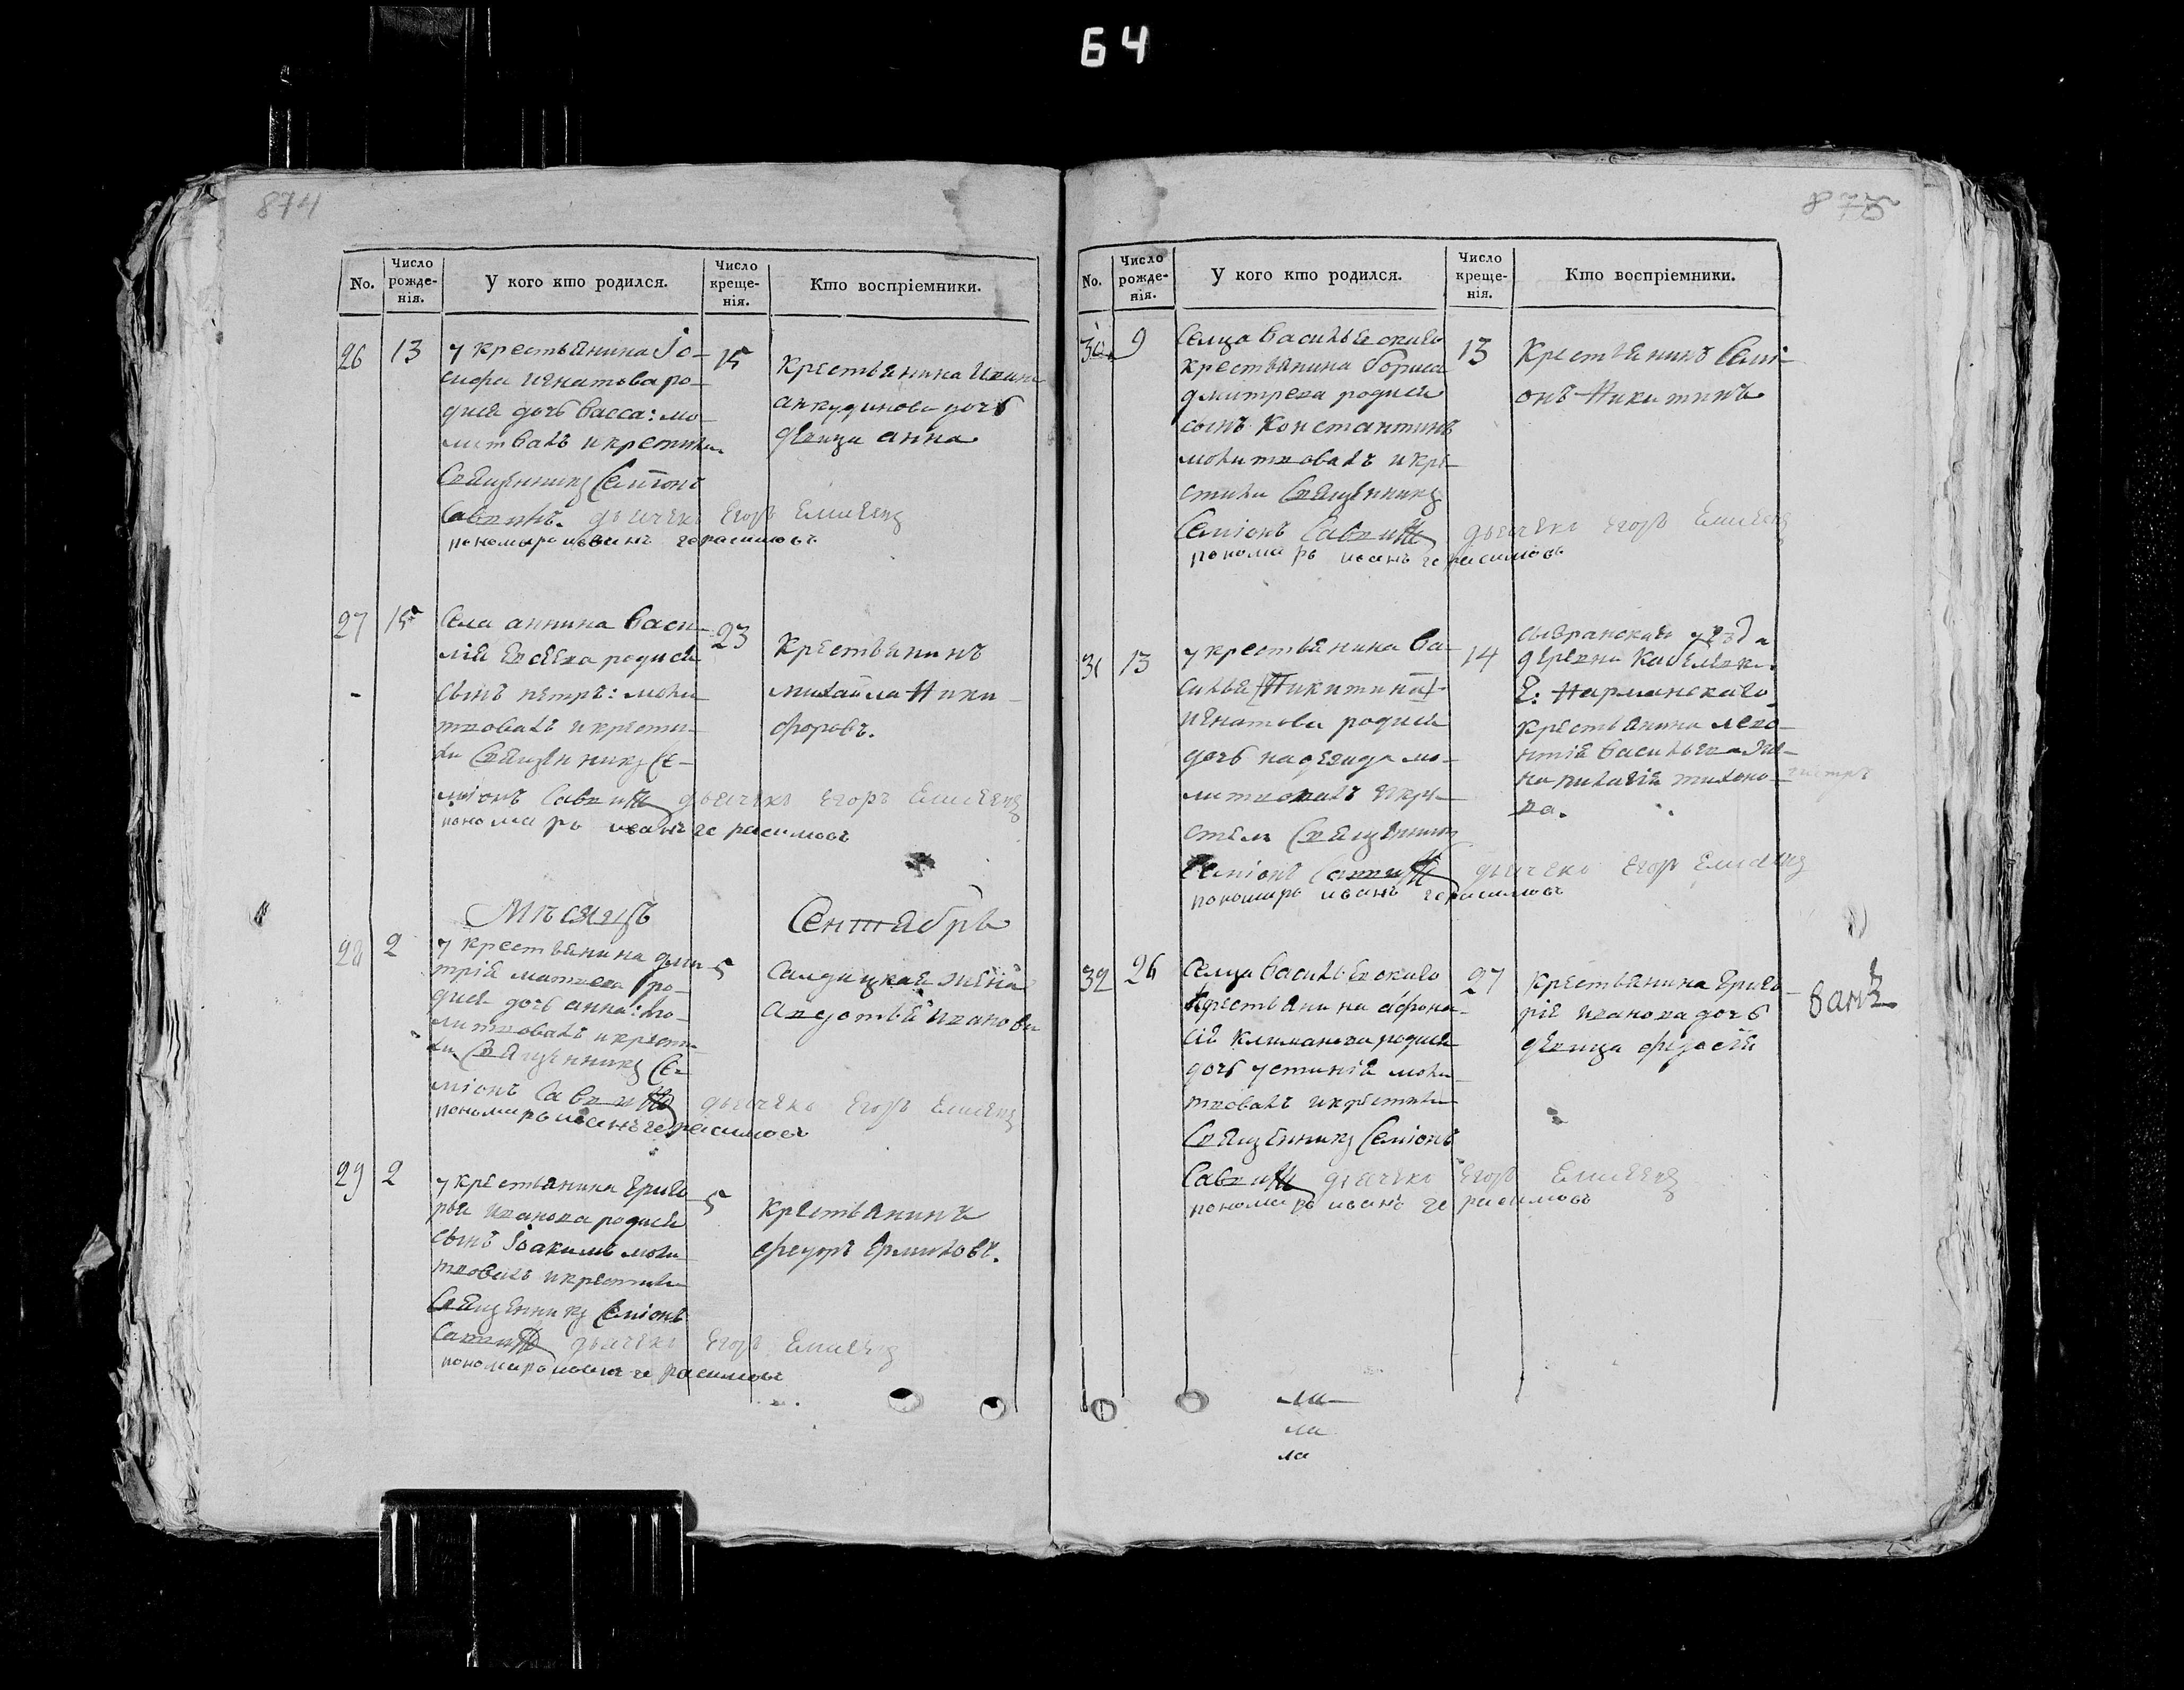 64
874
No.
Число рожде-нія.
У кого кто родился.
Число креще-нія.
Кто воспріемники.
26 13
у крестьянина Іо-
сифа игнатова ро-
дися дочь васса: мо-
литвалъ и крестилъ
Священникъ Семіонъ
Савинъ. дьячекъ Егоръ
пономарь иванъ герасимовъ
15
крестьянина ивана
анкудинова дочь
девица анна
27 15
Села аннина Васи-
лія Евсеева родися
сынъ петръ: моли
твовалъ и крести-
ли Священникъ Се-
міонъ Савинъ дьячекъ Егоръ
пономарь иванъ герасимовъ
23
крестьянинъ
михаила Ники-
форовъ.
Мѣсяцъ Сентябрь
28 2
у крестьянина дми
трія матвеева ро-
дися дочь анна: мо-
литвовалъ и крести
ли Священникъ Се
міонъ Савинъ дьячекъ Егоръ
пономарь иванъ герасимовъ
5
Салдацкая жена
авдотья иванова
29 2
у крестьянина григо
рья иванова родися
сынъ Іоакимъ моли
твовалъ и крестили
Священникъ Семіонъ
Савинъ дьячекъ Егоръ
пономарь иванъ герасимовъ
5
крестьянинъ
федоръ Ермиловъ.
875
No.
Число рожде-нія.
У кого кто родился.
Число креще-нія.
Кто воспріемники.
30 9
Селца васильевскаго
крестьянина бориса
дмитрева родися
сынъ Константинъ
молитвовалъ и кре-
стили Священникъ
Семіонъ Савинъ дьячекъ Егоръ
пономарь иванъ герасимовъ
13
Крестьянинъ Семі-
онъ Никитинъ
31 13
у крестьянина ва-
силья Никитина
игнатова родися
дочь надежда мо-
литвовалъ и кре-
стили Священникъ
Семіонъ Савинъ дьячекъ Егоръ
пономарь иванъ герасимовъ
14
сызранскай уезда
деревни
Г. Нарманскаго
крестьянина лево-
нтія васильева же-
на пилагія тихоно-
ва.
32 26
Селца васильевскаго
крестьянина афона-
сія климанова родися
дочь устинія моли-
твовалъ и крестили
Священникъ Семіонъ
Савинъ дьячекъ Егоръ
пономарь иванъ герасимовъ
27
крестьянина григо-
рія иванова дочь
девица федосія
ла
ла
ла